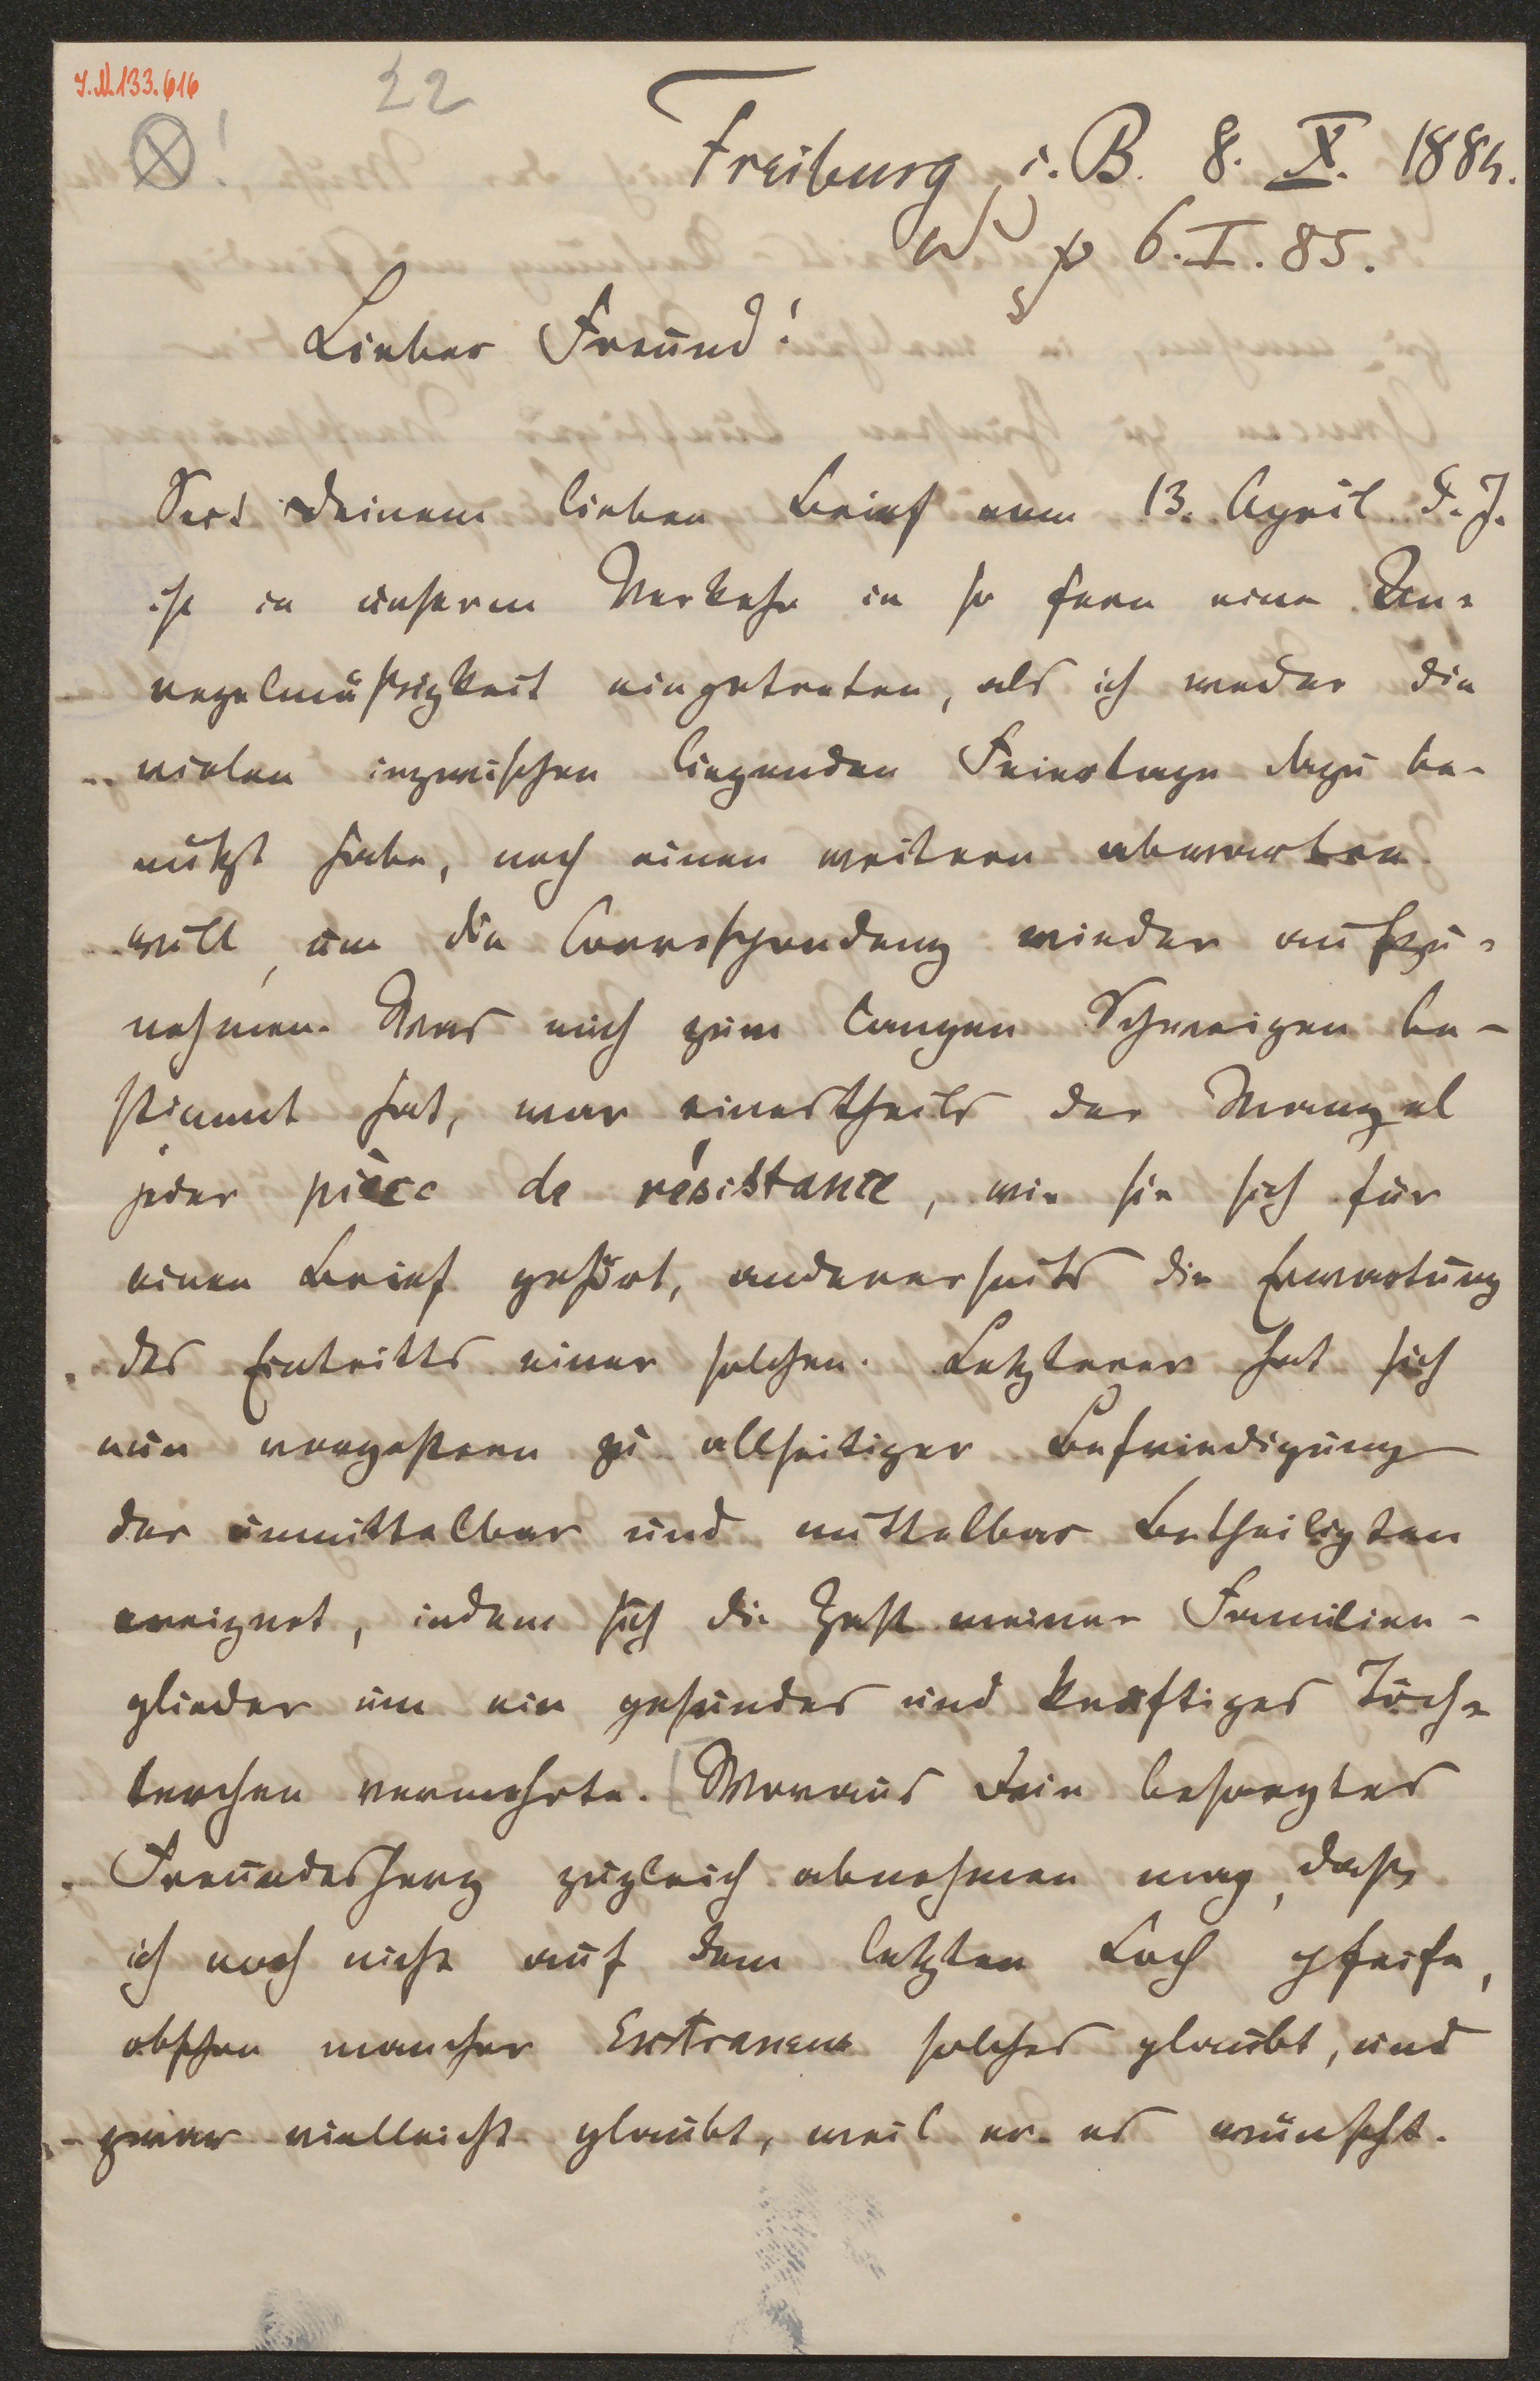 I.N.133.616
22
Freiburg i. B. 8. X. 1884.
p 6. I. 85.
Lieber Freund!
Seit Deinem lieben Brief vom 13. April d. J.
ist in unserm Verkehr in so fern eine Un-
regelmäßigkeit eingetreten, als ich weder die
vielen inzwischen liegenden Feiertage dazu be-
nützt habe, noch einen weitern abwarten
will, um die Correspondenz wieder aufzu-
nehmen. Was mich zum langen Schweigen be-
stimmt hat, war einestheils der Mangel
jeder pièce de résistance, wie sie sich für
einen Brief gehört, anderenseits die Erwartung
des Eintritts einer solchen. Letzterer hat sich
nun vorgestern zu allseitiger Befriedigung
der unmittelbar und mittelbar Betheiligten
ereignet, indem sich die Zahl meiner Familien-
glieder um ein gesundes und kräftiges Töch-
terchen vermehrte. [Woraus Dein besorgtes
Freundesherz zugleich abnehmen mag, daß
ich noch nicht auf dem letzten Loch pfeife,
obschon mancher Extraneus solches glaubt, und
zwar vielleicht glaubt, weil er es wünscht.